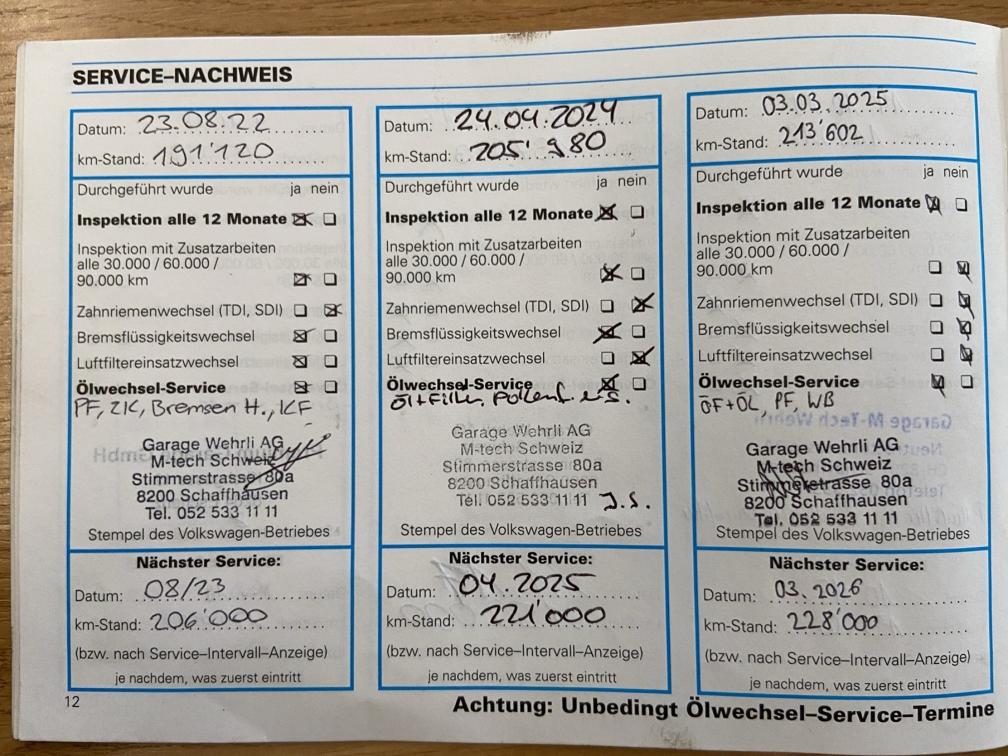 SERVICE–NACHWEIS
Datum: 23.08.22
km-Stand: 191'120
Durchgeführt wurde ja nein
Inspektion alle 12 Monate
Inspektion mit Zusatzarbeiten
alle 30.000 / 60.000 /
90.000 km
Zahnriemenwechsel (TDI, SDI)
Bremsflüssigkeitswechsel
Luftfiltereinsatzwechsel
Ölwechsel-Service
PF, ZK, Bremsen H., KF
Garage Wehrli AG
M-tech Schweiz
Stimmerstrasse 80a
8200 Schaffhausen
Tel. 052 533 11 11
Stempel des Volkswagen-Betriebes
Nächster Service:
Datum: 08/23
km-Stand: 206'000
(bzw. nach Service–Intervall–Anzeige)
je nachdem, was zuerst eintritt
Datum: 24.04.2024
km-Stand: 205'980
Durchgeführt wurde ja nein
Inspektion alle 12 Monate
Inspektion mit Zusatzarbeiten
alle 30.000 / 60.000 /
90.000 km
Zahnriemenwechsel (TDI, SDI)
Bremsflüssigkeitswechsel
Luftfiltereinsatzwechsel
Ölwechsel-Service
Öl+Filter, Pollenf.
Garage Wehrli AG
M-tech Schweiz
Stimmerstrasse 80a
8200 Schaffhausen
Tel. 052 533 11 11 J.S.
Stempel des Volkswagen-Betriebes
Nächster Service:
Datum: 04.2025
km-Stand: 221'000
(bzw. nach Service–Intervall–Anzeige)
je nachdem, was zuerst eintritt
Datum: 03.03.2025
km-Stand: 213'602
Durchgeführt wurde ja nein
Inspektion alle 12 Monate
Inspektion mit Zusatzarbeiten
alle 30.000 / 60.000 /
90.000 km
Zahnriemenwechsel (TDI, SDI)
Bremsflüssigkeitswechsel
Luftfiltereinsatzwechsel
Ölwechsel-Service
ÖF+ÖL, PF, WB
Garage Wehrli AG
M-tech Schweiz
Stimmerstrasse 80a
8200 Schaffhausen
Tel. 052 533 11 11
Stempel des Volkswagen-Betriebes
Nächster Service:
Datum: 03.2026
km-Stand: 228'000
(bzw. nach Service–Intervall–Anzeige)
je nachdem, was zuerst eintritt
12
Achtung: Unbedingt Ölwechsel–Service–Termine